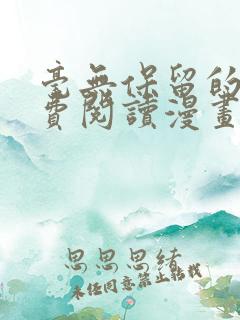 毫無保留的
費閱讀漫畫
思思思緒
未經同意禁止轉載